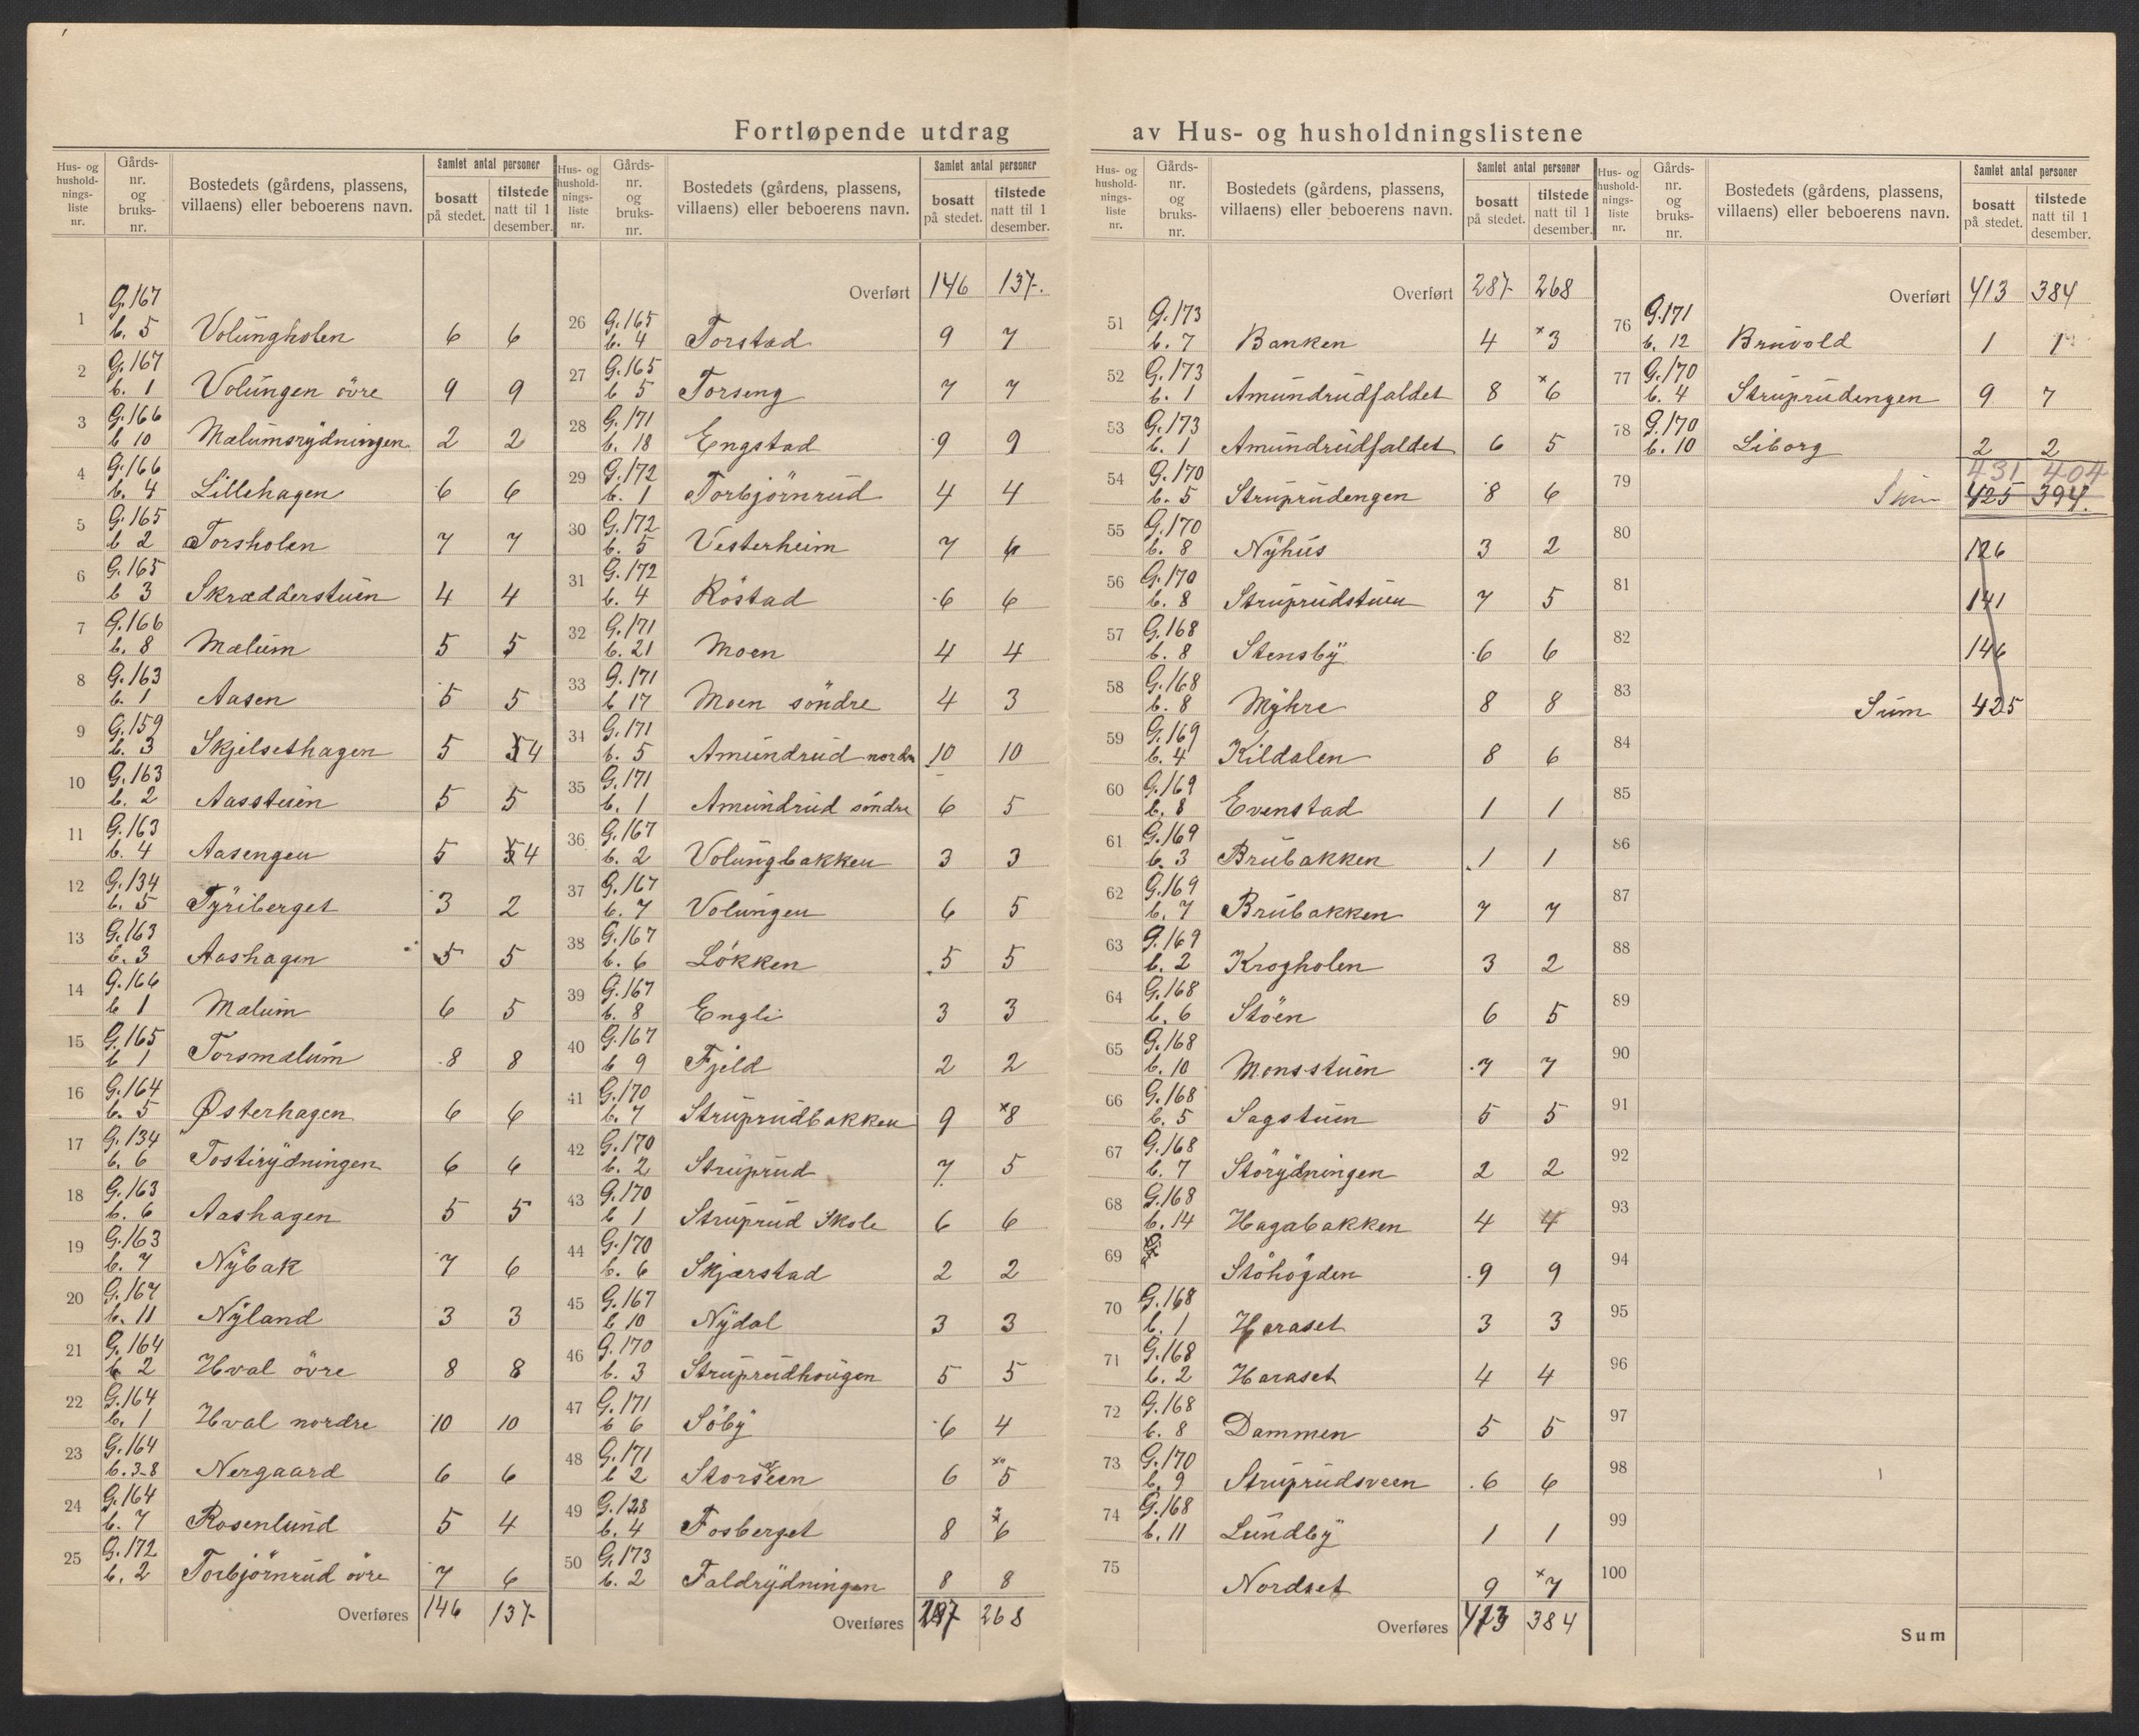 Fortløpende utdrag av Hus- og husholdningslistene
Hus- og husholdnings-liste nr. | Gårds-nr. og bruks-nr. | Bostedets (gårdens, plassens, villaens) eller beboerens navn. | Samlet antal personer | bosatt på stedet. | tilstede natt til 1 desember.
1 G.167 b. 5 Volungholen 6 6
2 G.167 b. 1 Volungen övre 9 9
3 G.166 b 10 Mælumsrydningen 2 2
4 G.166 b. 4 Lillehagen 6 6
5 G.165 b 2 Torsholen 7 7
6 G.165 b 3 Skrædderstuen 4 4
7 G.166 b. 8 Mælum 5 5
8 G.163 b. 1 Aasen 5 5
9 G.159 b. 3 Skjelsethagen 5 5 4
10 G.163 b. 2 Aasstuen 5 5
11 G.163 b. 4 Aasengen 5 5 4
12 G.134 b. 5 Tyriberget 3 2
13 G.163 b. 3 Aashagen 5 5
14 G.166 b 1 Mælum 6 5
15 G.165 b 1 Torsmælum 8 8
16 G.164 b. 5 Østerhagen 6 6
17 G.134 b. 6 Tostirydningen 6 6
18 G.163 b. 6 Aashagen 5 5
19 G.163 b. 7 Nybak 7 6
20 G.167 b. 11 Nyland 3 3
21 G.164 b 2 Hval övre 8 8
22 G.164 b. 1 Hval nordre 10 10
23 G.164 b. 3-8 Nergaard 6 6
24 G.164 b. 7 Rosenlund 5 4
25 G.172 b. 2 Torbjörnrud övre 7 6
Overføres 146 137
Hus- og husholdnings-liste nr. | Gårds-nr. og bruks-nr. | Bostedets (gårdens, plassens, villaens) eller beboerens navn. | Samlet antal personer | bosatt på stedet. | tilstede natt til 1 desember.
Overført 146 137.
26 G.165 b. 4 Torstad 9 7
27 G.165 b 5 Torseng 7 7
28 G.171 b. 18 Engstad 9 9
29 G.172 b. 1 Torbjörnrud 4 4
30 G.172 b. 5 Vesterheim 7 6
31 G.172 b. 4 Röstad 6 6
32 G.171 b. 21 Moen 4 4
33 G.171 b 17 Moen söndre 4 3
34 G.171 b. 5 Amundrud nordre 10 10
35 G.171 b. 1 Amundrud söndre 6 5
36 G.167 b. 2 Volungbakken 3 3
37 G.167 b. 7 Volungen 6 5
38 G.167 b. 6 Lökken 5 5
39 G.167 b. 8 Engli 3 3
40 G.167 b 9 Fjeld 2 2
41 G.170 b. 7 Struprudbakken 9 x8
42 G.170 b. 2 Struprud 7 5
43 G.170 b 1 Struprud Skole 6 6
44 G.170 b. 6 Skjærstad 2 2
45 G.167 b 10 Nydal 3 3
46 G.170 b. 3 Struprudhougen 5 5
47 G.171 b 6 Söby 6 4
48 G.171 b 2 Storseen 6 x5
49 G.128 b. 4 Fosberget 8 x6
50 G.173 b. 2 Faldrydningen 8 8
Overføres 287 268
Hus- og husholdnings-liste nr. | Gårds-nr. og bruks-nr. | Bostedets (gårdens, plassens, villaens) eller beboerens navn. | Samlet antal personer | bosatt på stedet. | tilstede natt til 1 desember.
Overført 287 268
51 G.173 b. 7 Banken 4 x3
52 G.173 b. 1 Amundrudfaldet 8 x6
53 G.173 b. 1 Amundrudfaldet 6 5
54 G.170 b. 5 Struprudengen 8 6
55 G.170 b. 8 Nyhus 3 2
56 G.170 b. 8 Struprudstuen 7 5
57 G.168 b. 8 Stensby 6 6
58 G.168 b. 8 Myhre 8 8
59 G.169 b. 4 Kildalen 8 6
60 G.169 b. 8 Evenstad 1 1
61 G.169 b. 3 Brubakken 1 1
62 G.169 b. 7 Brubakken 7 7
63 G.169 b. 2 Krogholen 3 2
64 G.168 b. 6 Stöen 6 5
65 G.168 b. 10 Monsstuen 7 7
66 G.168 b. 5 Sagstuen 5 5
67 G.168 b. 7 Störydningen 2 2
68 G.168 b. 14 Hagabakken 4 4
69 Stöhögden 9 9
70 G.168 b. 1 Haraset 3 3
71 G.168 b. 2 Haraset 4 4
72 G.168 b. 8 Dammen 5 5
73 G.170 b. 9 Struprudsveen 6 6
74 G.168 b. 11 Lundby 1 1
75 Nordset 9 x7
Overføres 413 384
Hus- og husholdnings-liste nr. | Gårds-nr. og bruks-nr. | Bostedets (gårdens, plassens, villaens) eller beboerens navn. | Samlet antal personer | bosatt på stedet. | tilstede natt til 1 desember.
Overført 413 384
76 G.171 b. 12 Bruvold 1 1
77 G.170 b. 4 Struprudengen 9 7
78 G.170 b. 10 Liborg 2 2
431 404
79 Sum 425 394.
80 126
81 141
82 146
83 Sum 425
84
85
86
87
88
89
90
91
92
93
94
95
96
97
98
99
100
Sum